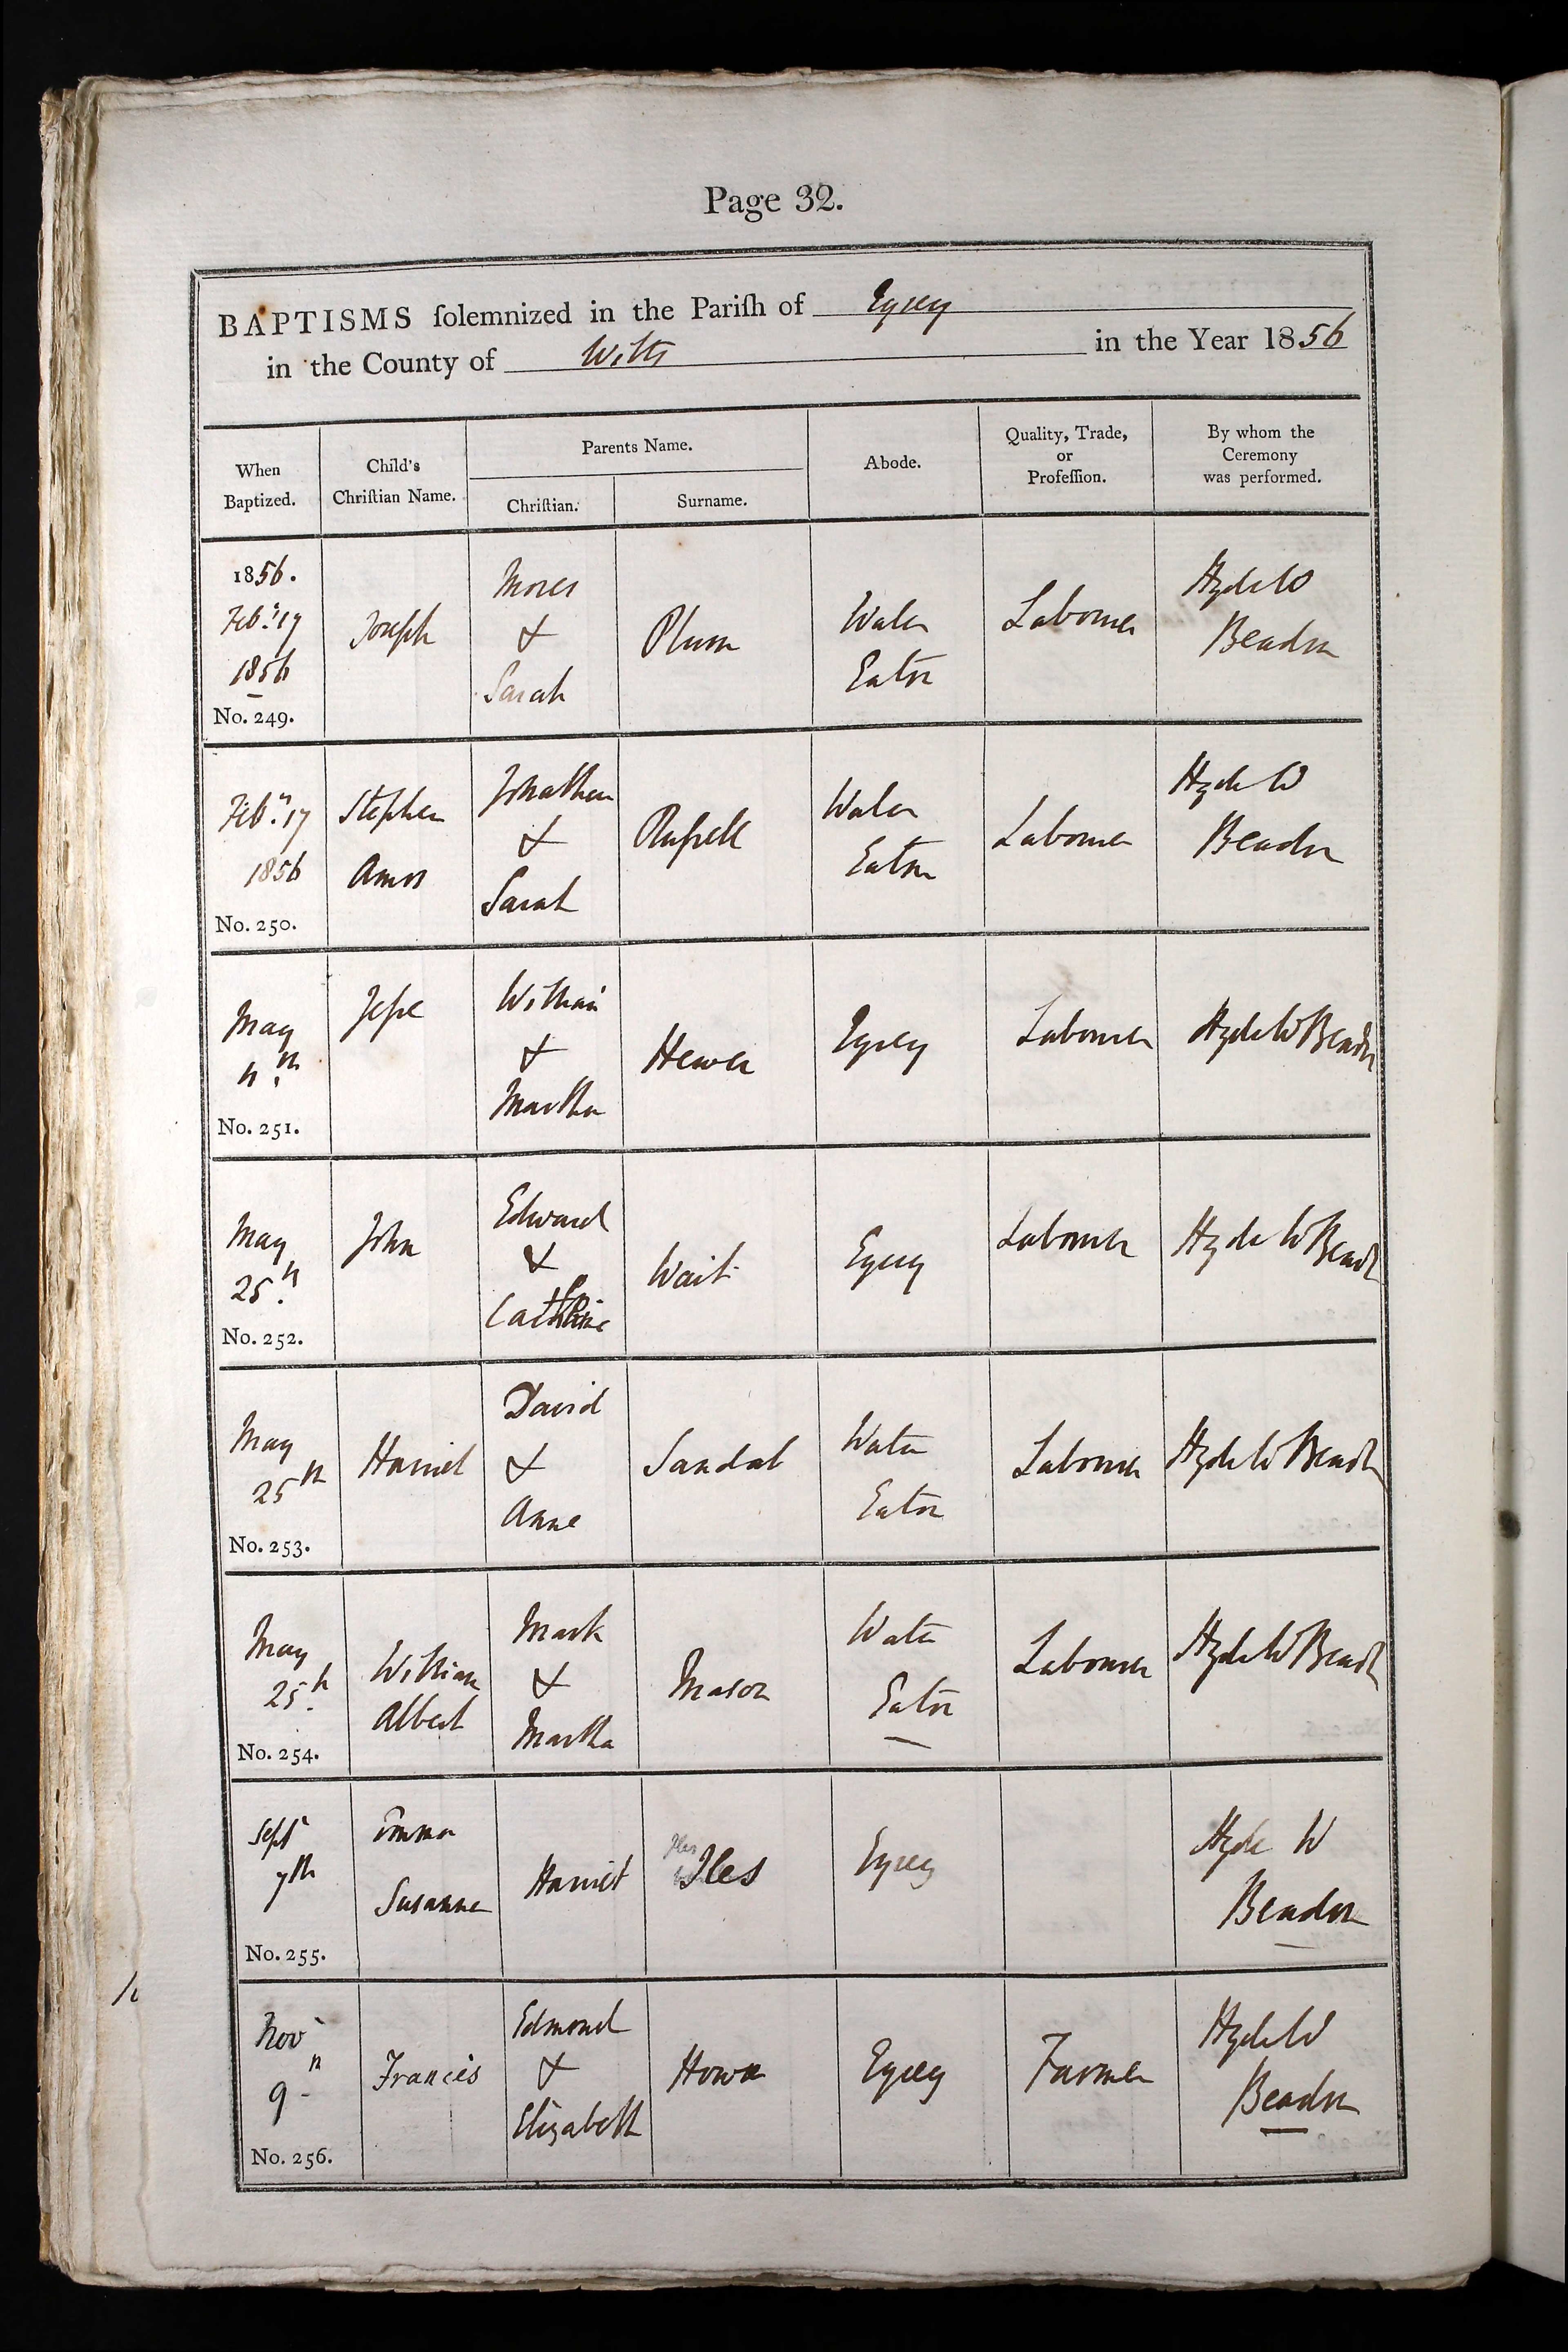 Page 32.
BAPTISMS ſolemnized in the Pariſh of Eysey
in the County of Wilts in the Year 1856
When Baptized.
Child's Chriſtian Name.
Parents Name.
Chriſtian.
Surname.
Abode.
Quality, Trade, or Profeſſion.
By whom the Ceremony was performed.
1856.
Feby 17
1856
No. 249.
Joseph
Moses
&
Sarah
Plum
Water
Eaton
Labourer
Hyde W
Beadon
Feby 17
1856
No. 250.
Stephen
Amos
Jonathan
&
Sarah
Ruſsell
Water
Eaton
Labourer
Hyde W
Beadon
May
No. 251.
Jeſse
William
&
Martha
Hewer
Eysey
Labourer
Hyde W Beadon
May
25th
No. 252.
John
Edward
&
Catherine
Wait
Eysey
Labourer
Hyde W Beadon
May
25th
No. 253.
Harriet
David
&
Anne
Sandal
Water
Eaton
Labourer
Hyde W Beadon
May
25th
No. 254.
William
Albert
Mark
&
Martha
Mason
Water
Eaton
Labourer
Hyde W Beadon
Septr
7th
No. 255.
Emma
Susanna
Harriet
Iles
Iles
Eysey
Hyde W
Beadon
Novr
9th
No. 256.
Francis
Edmond
&
Elizabeth
Eysey
Farmer
Hyde W
Beadon